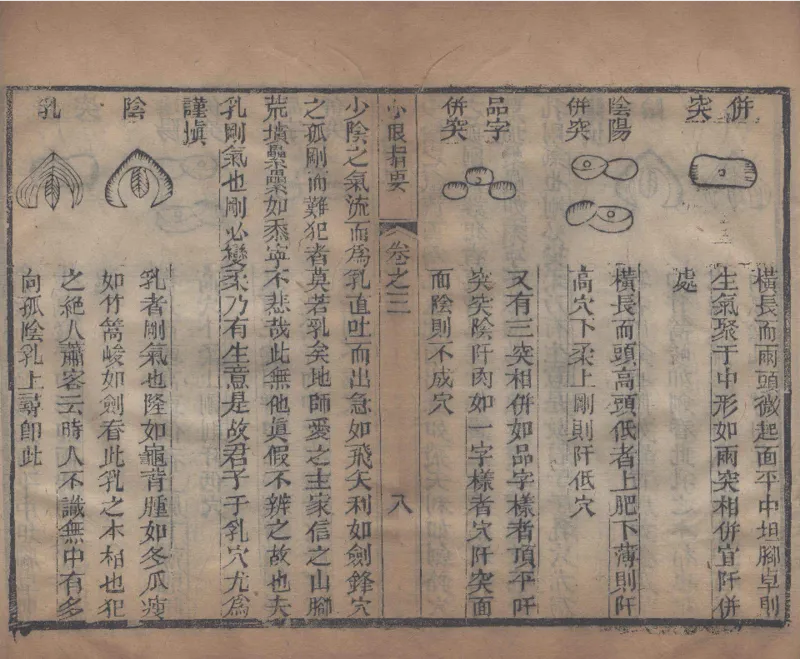 併突
橫長而兩頭微起面平中坦腳卓則
生氣聚于中形如兩突相併宜阡併
處
陰陽
併突
橫長而頭高頭低者上肥下薄則阡
高穴下柔上剛則阡低穴
品字
併突
又有三突相併如品字樣者頂平阡
突突陰阡肉如一字樣者穴阡突面
面陰則不成穴
小眼指要
卷之三
八
少陰之氣流而爲乳直吐而出急如飛矢利如劍鋒穴
之孤剛而難犯者莫若乳矣地師愛之主家信之山腳
荒墳纍纍如黍寧不悲哉此無他眞假不辨之故也夫
乳剛氣也剛必變柔乃有生意是故君子于乳穴尤爲
謹慎
陰
乳
乳者剛氣也隆如龜背腫如冬瓜瘦
如竹篙峻如劍脊此乳之本相也犯
之絕人蕭客云時人不識無中有多
向孤陰乳上尋卽此